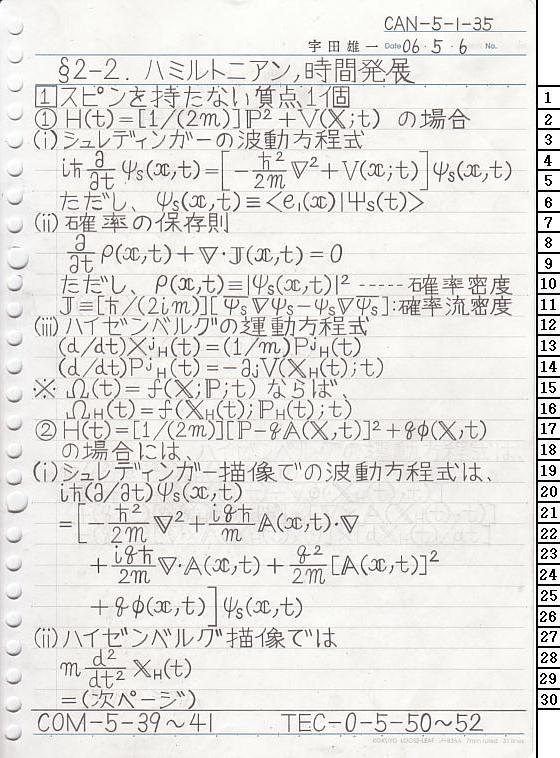 CAN-5-1-35
宇田雄一 Date 06・5・6 No.
§2-2. ハミルトニアン,時間発展
1 スピンを持たない質点1個
① H(t)=[1/(2m)]ℙ²+V(𝕏;t) の場合
(i)シュレディンガーの波動方程式
iħ ∂/∂t ψs(𝕩,t)=[-ħ²/2m ∇²+V(𝕩;t)]ψs(𝕩,t)
ただし、ψs(𝕩,t)≡<e₁(𝕩)|Ψs(t)>
(ii)確率の保存則
∂/∂t ρ(𝕩,t)+∇・J(𝕩,t)=0
ただし、ρ(𝕩,t)≡|ψs(𝕩,t)|² -----確率密度
J≡[ħ/(2im)][ψ̄s∇ψs-ψs∇ψ̄s]:確率流密度
(iii)ハイゼンベルグの運動方程式
(d/dt)XʲH(t)=(1/m)PʲH(t)
(d/dt)PʲH(t)=-∂ⱼV(𝕏H(t);t)
※ Ω(t)=f(𝕏;ℙ;t) ならば、
ΩH(t)=f(𝕏H(t);ℙH(t);t)
② H(t)=[1/(2m)][ℙ-q𝔸(𝕏,t)]²+qφ(𝕏,t)
の場合には、
(i)シュレディンガー描像での波動方程式は、
iħ(∂/∂t)ψs(𝕩,t)
=[-ħ²/2m ∇²+iqħ/m 𝔸(𝕩,t)・∇
+iqħ/2m ∇・𝔸(𝕩,t)+q²/2m [𝔸(𝕩,t)]²
+qφ(𝕩,t)]ψs(𝕩,t)
(ii)ハイゼンベルグ描像では
m d²/dt² 𝕏H(t)
=(次ページ)
COM-5-39~41 TEC-0-5-50~52
KOKUYO LOOSE-LEAF ノ-836A 7mm ruled 31 lines
1
2
3
4
5
6
7
8
9
10
11
12
13
14
15
16
17
18
19
20
21
22
23
24
25
26
27
28
29
30